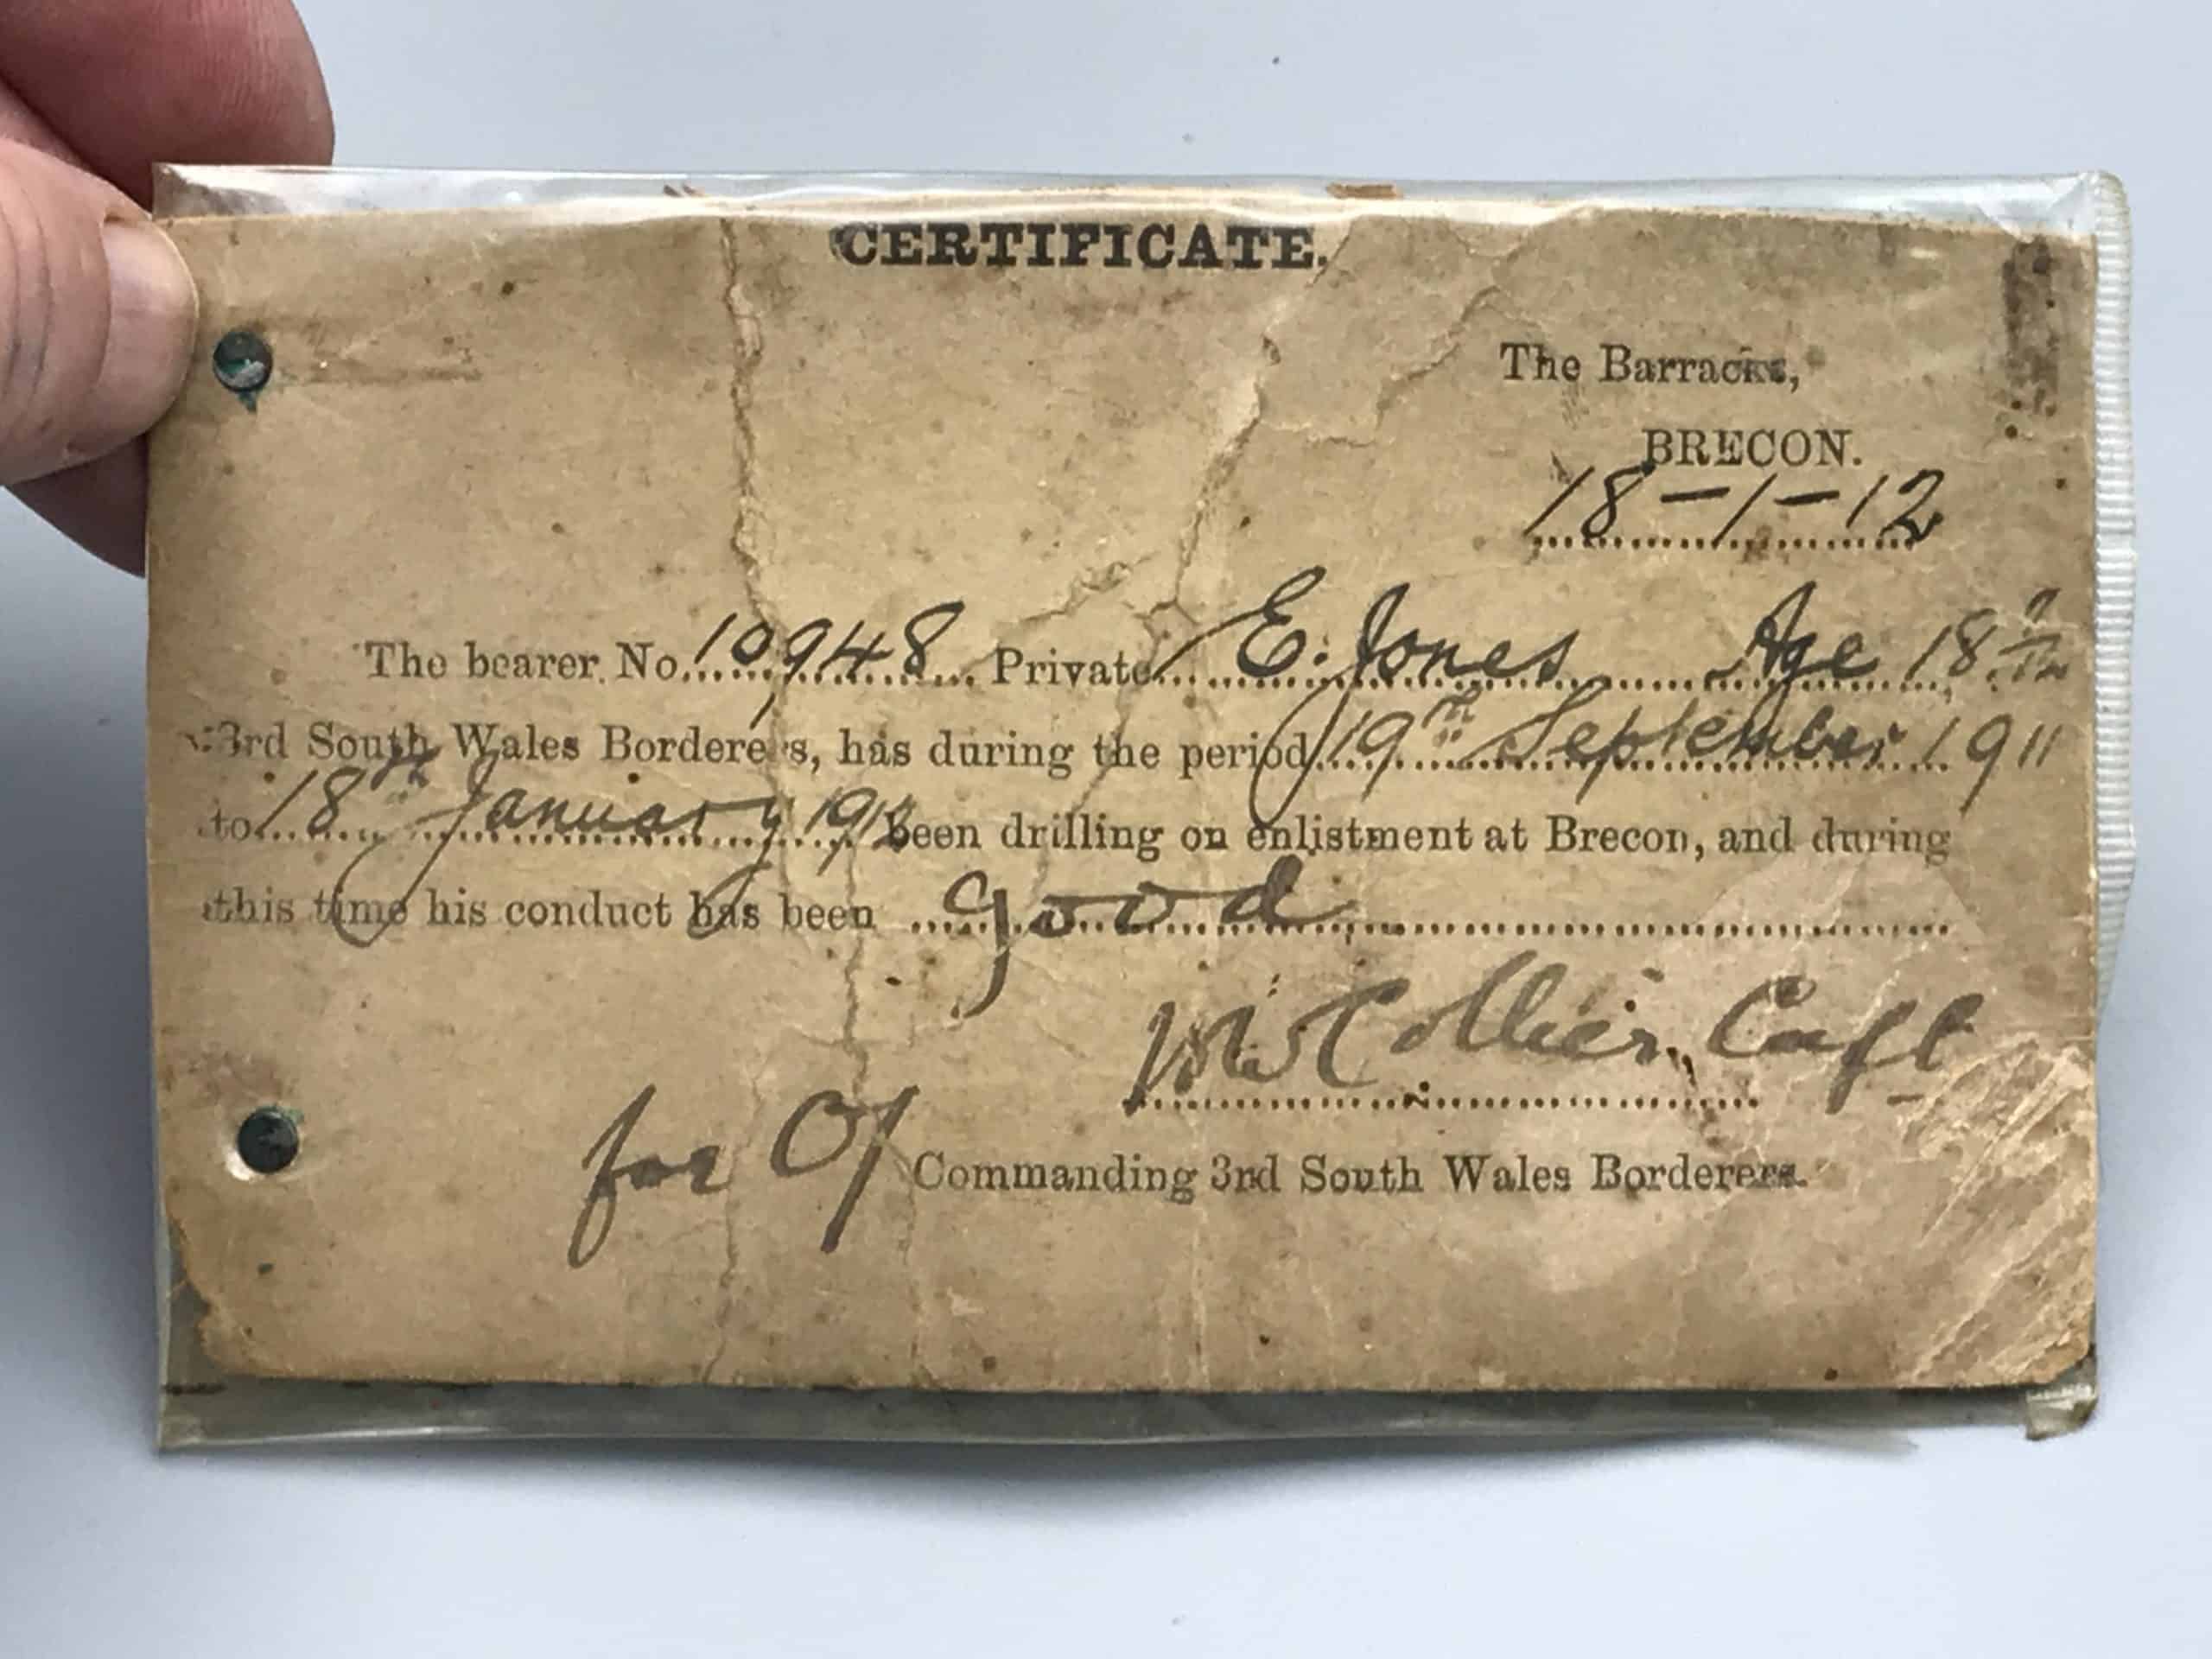 CERTIFICATE.
The Barracks,
BRECON.
18-1-12
The bearer No. 10,948 Private E. Jones Age 18
3rd South Wales Borderers, has during the period 19th September 1911
to 18th January 1912 been drilling on enlistment at Brecon, and during
this time his conduct has been good
Collier, Capt
for O/ Commanding 3rd South Wales Borderers.